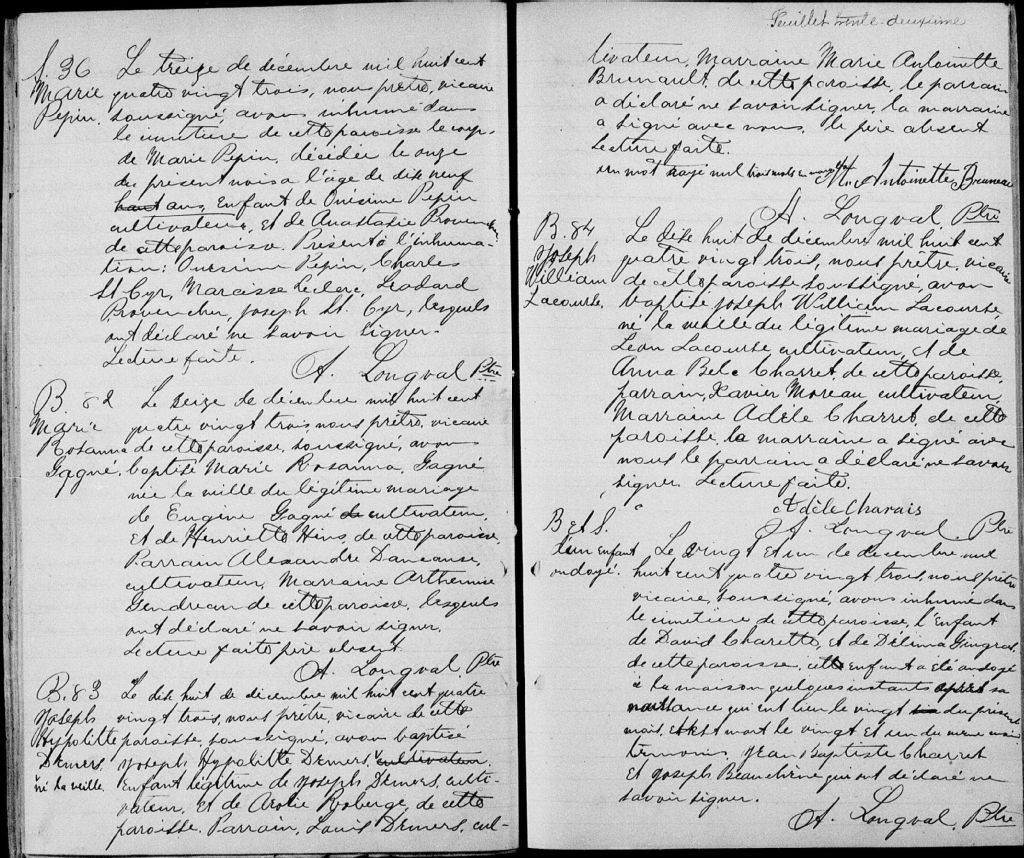 S. 36
Marie
Pepin.
Le treize de décembre mil huit cent
quatre vingt trois, nous prêtre, vicaire
soussigné avons inhumé dans
le cimetière de cette paroisse le corps
de Marie Pepin, décédée le onze
du présent mois a l'âge de dix neuf
ans, Enfant de Onésime Pepin
cultivateur, Et de Anastasie Provencher
de cette paroisse. Présents à l'inhuma-
tion: Onésime Pepin, Charles
St Cyr, Narcisse Leclerc, Léodard
Provencher, Joseph St. Cyr, lesquels
ont déclaré ne savoir signer.
Lecture faite.
A. Longval Ptre
B. 82
Marie
Rosanna
Gagné.
Le seize de décembre mil huit cent
quatre vingt trois, nous prêtre, vicaire
de cette paroisse, soussigné, avons
baptisé Marie Rosanna, Gagné
née la veille du légitime mariage
de Eugène Gagné de cultivateur,
Et de Henriette Hins, de cette paroisse,
Parrain Alexandre Dancause,
cultivateur, Marraine Arthémise
Gendreau de cette paroisse, lesquels
ont déclaré ne savoir signer.
Lecture faite père absent
A. Longval, Ptre
B. 83
Joseph
Hypolitte
Demers.
né la veille.
Le dix huit de décembre mil huit cent quatre
vingt trois, nous prêtre, vicaire de cette
paroisse, soussigné, avons baptisé
Joseph Hypolitte Demers, cultivateur.
Enfant légitime de Joseph Demers, culti-
vateur, Et de Arolie Roberge, de cette
paroisse. Parrain, Louis Demers, cul-
Feuillet trente-deuxième
tivateur, Marraine Marie Antoinette
Brunault, de cette paroisse, le parrain
a déclaré ne savoir signer, la marraine
a signé avec nous, le père absent
Lecture faite.
un mot rayé nul trois mots en marge
M. Antoinette Bruneau
A. Longval, Ptre
B. 84
Joseph
William
Lacourse.
Le dix huit de décembre mil huit cent
quatre vingt trois, nous prêtre, vicaire
de cette paroisse soussigné, avons
baptisé Joseph William Lacourse,
né la veille du légitime mariage de
Léon Lacourse cultivateur, Et de
Anna Bele Charret, de cette paroisse,
parrain, Xavier Moreau cultivateur,
Marraine Adèle Charret, de cette
paroisse, la marraine a signé avec
nous le parrain a déclaré ne savoir
signer. Lecture faite.
Adèle Charais
A. Longval Ptre
B et S.
d'un enfant
ondoyé.
Le vingt Et un de décembre mil
huit cent quatre vingt trois, nous prêtre
vicaire, soussigné, avons inhumé dans
le cimetière de cette paroisse, l'Enfant
de David Charette, Et de Délima Gingras,
de cette paroisse, cette enfant a été ondoyé
à la maison quelques instants après sa
naissance qui eut lieu le vingt du présent
mois, Et est mort le vingt Et un du même mois
témoins, Jean Baptiste Charret
Et Joseph Beauchêne qui ont déclaré ne
savoir signer.
A. Longval, Ptre